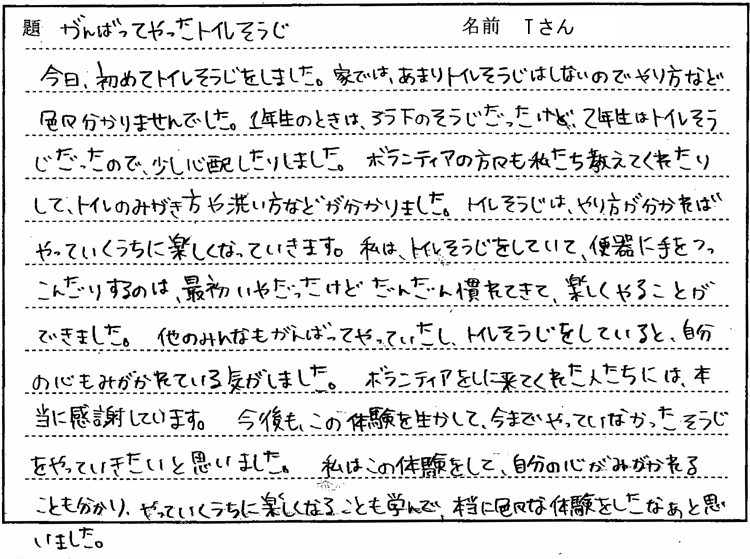 題 がんばってやったトイレそうじ 名前 Tさん
今日、初めてトイレそうじをしました。家では、あまりトイレそうじはしないのでやり方など
色々分かりませんでした。1年生のときは、ろう下のそうじだったけど、2年生はトイレそう
じだったので、少し心配したりしました。ボランティアの方々も私たち教えてくれたり
して、トイレのみがき方や洗い方などが分かりました。トイレそうじは、やり方が分かれば
やっていくうちに楽しくなっていきます。私は、トイレそうじをしていて、便器に手をつっ
こんだりするのは、最初いやだったけどだんだん慣れてきて、楽しくやることが
できました。他のみんなもがんばってやっていたし、トイレそうじをしていると、自分
の心もみがかれている気がしました。ボランティアをしに来てくれた人たちには、本
当に感謝しています。今後も、この体験を生かして、今までやっていなかったそうじ
をやっていきたいと思いました。私はこの体験をして、自分の心がみがかれる
ことも分かり、やっていくうちに楽しくなることも学んで、本当に色々な体験をしたなぁと思
いました。